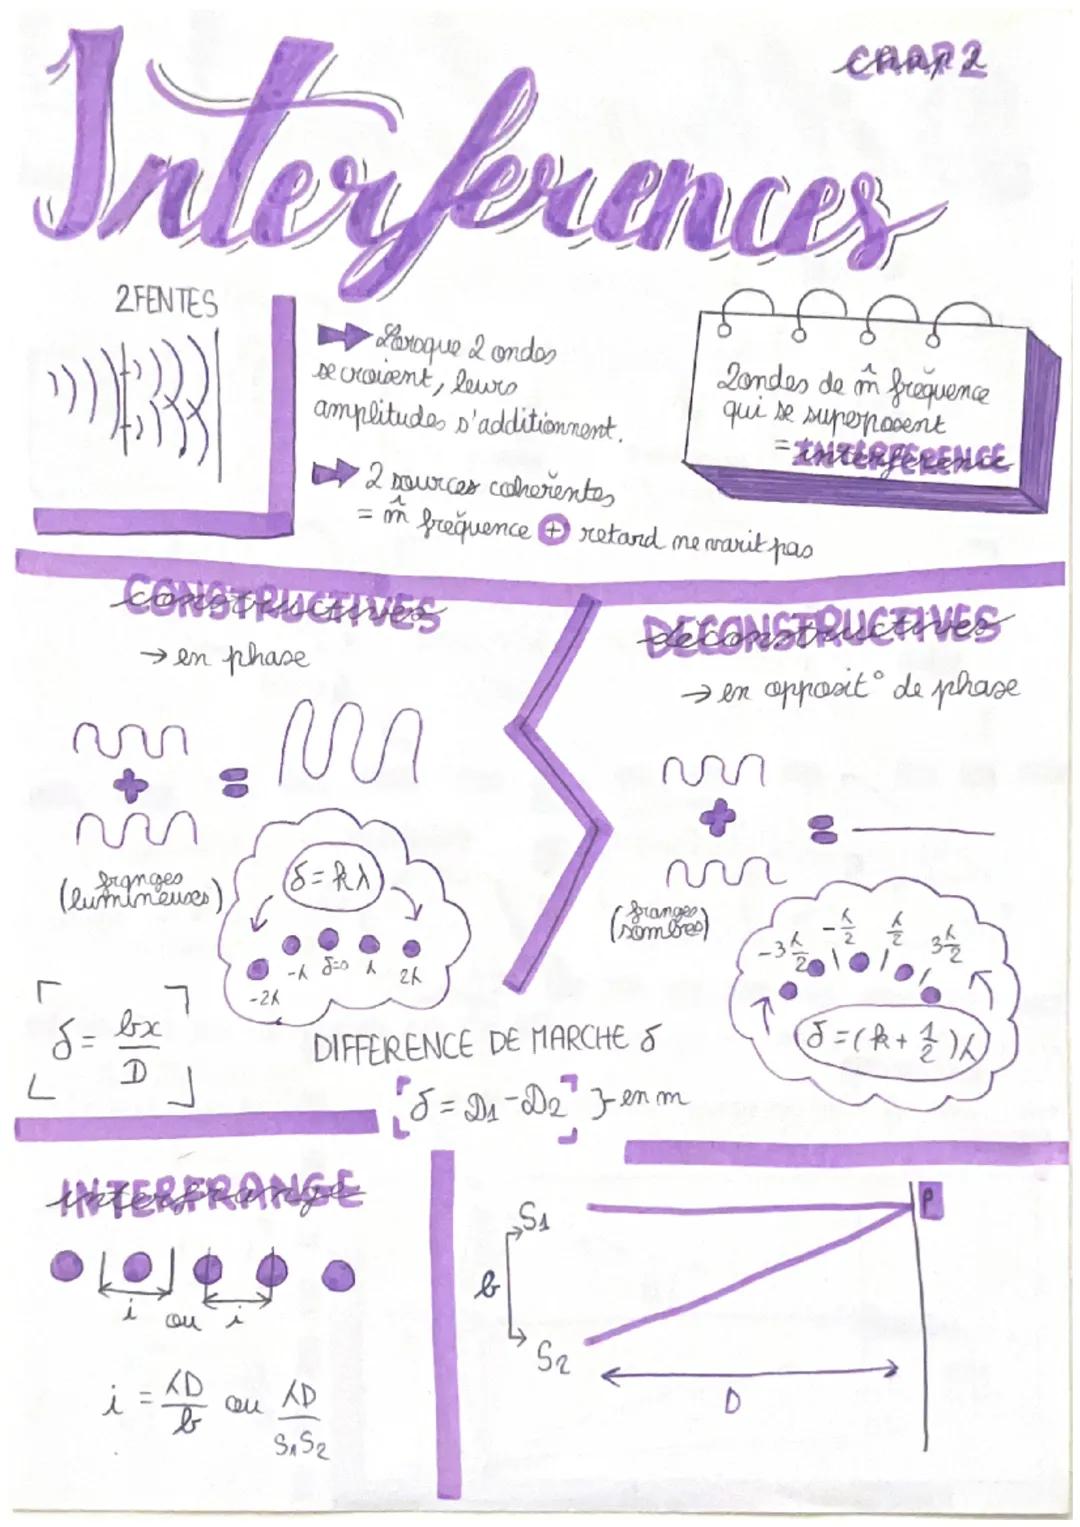 chap 2
Interferences
2 FENTES
Lorsque 2 ondes
se croisent, leurs
amplitudes s'additionnent.
2 sources cohérentes
= m̂ fréquence + retard ne varit pas
2 ondes de m̂ fréquence
qui se superposent
= INTERFERENCE
CONSTRUCTIVES
→ en phase
+
=
(franges
lumineuses)
δ = kλ
-2λ -λ δ=0 λ 2λ
δ = bx/D
DECONSTRUCTIVES
→ en opposit° de phase
+
=
(franges
sombres)
-3λ/2 -λ/2 λ/2 3λ/2
δ = (k + 1/2)λ
DIFFERENCE DE MARCHE δ
δ = D1 - D2 } en m
INTERFRANGE
i ou i
i = λD/b ou λD/S1S2
S1
P
b
S2
D